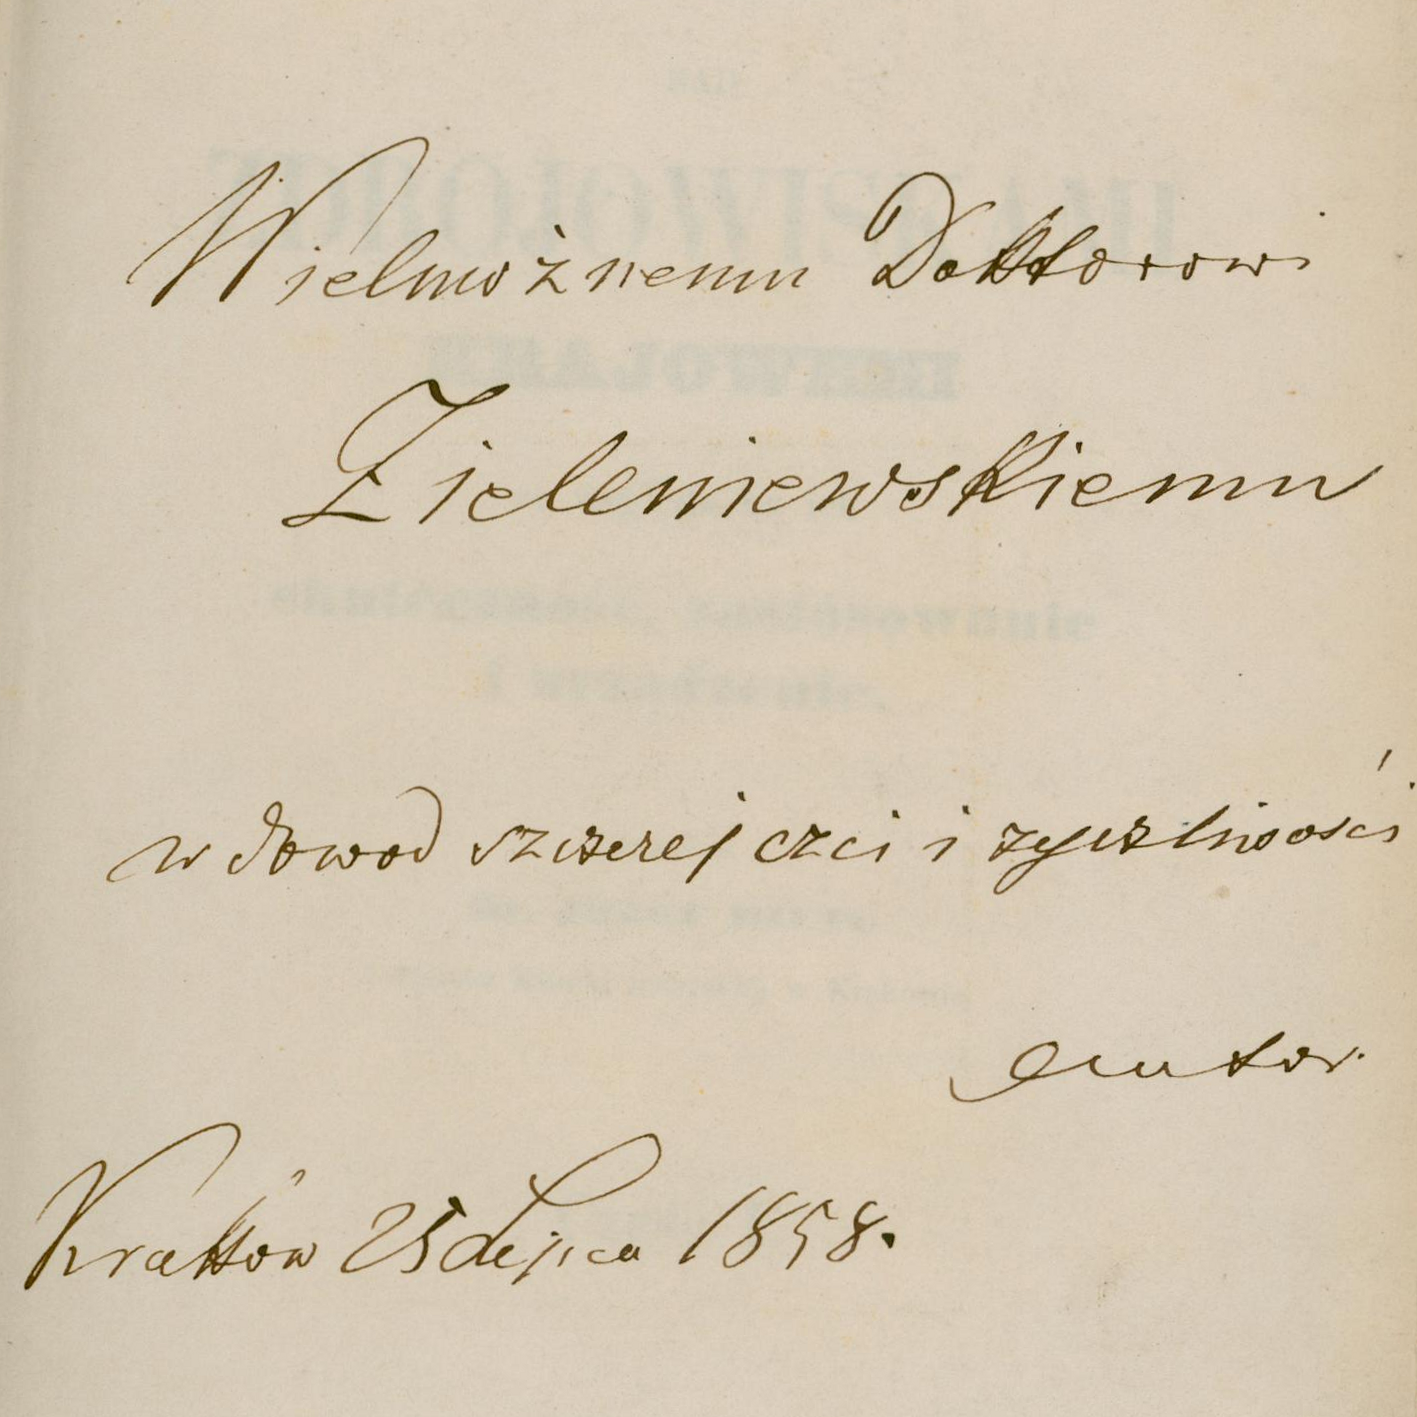 Wielmożnemu Doktorowi
Zieleniewskiemu
w dowod szczerej czci i zyczliwości
Autor.
Kraków 25 Lipca 1858.